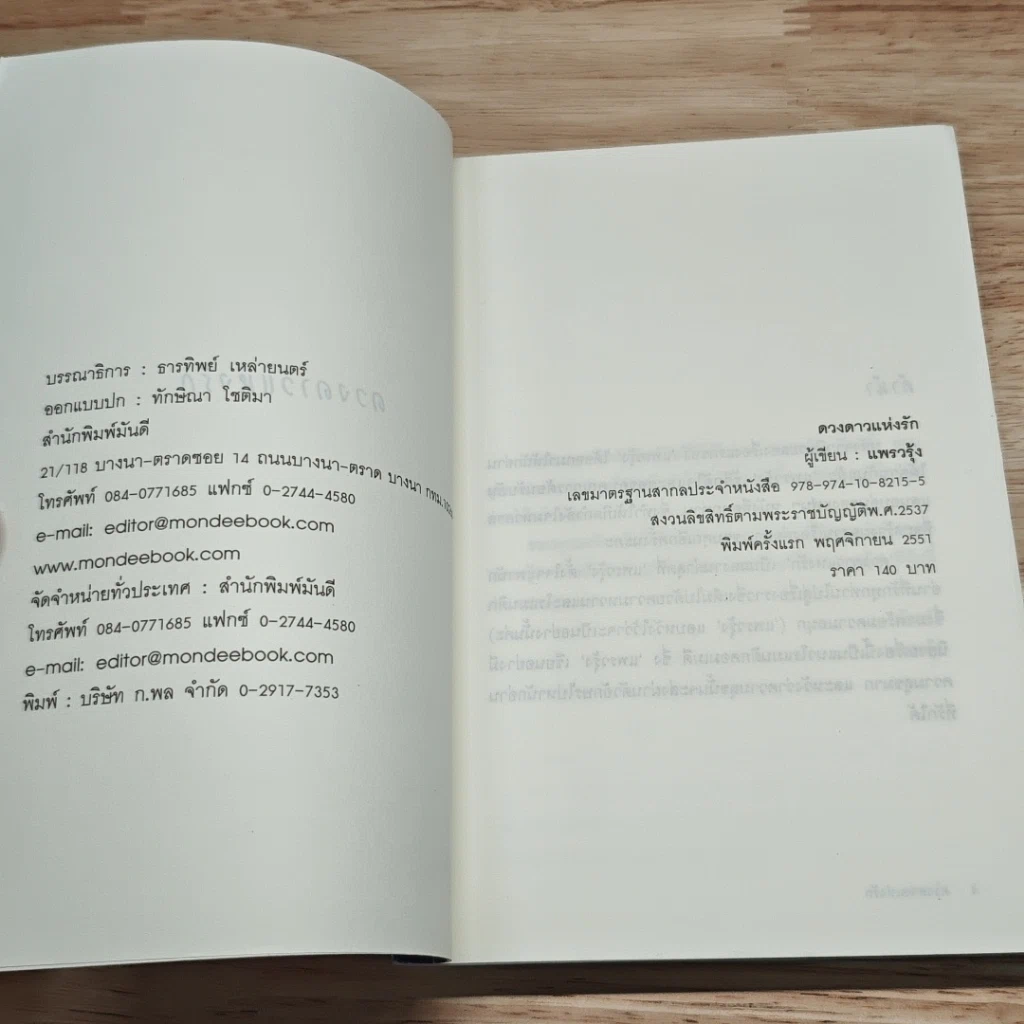 บรรณาธิการ : ธารทิพย์ เหล่ายนตร์
ออกแบบปก : ทักษิณา โชติมา
สำนักพิมพ์มันดี
21/118 บางนา-ตราดซอย 14 ถนนบางนา-ตราด บางนา กทม.
โทรศัพท์ 084-0771685 แฟกซ์ 0-2744-4580
e-mail: editor@mondeebook.com
www.mondeebook.com
จัดจำหน่ายทั่วประเทศ : สำนักพิมพ์มันดี
โทรศัพท์ 084-0771685 แฟกซ์ 0-2744-4580
e-mail: editor@mondeebook.com
พิมพ์ : บริษัท ก.พล จำกัด 0-2917-7353
ดวงดาวแห่งรัก
ผู้เขียน : แพรวรุ้ง
เลขมาตรฐานสากลประจำหนังสือ 978-974-10-8215-5
สงวนลิขสิทธิ์ตามพระราชบัญญัติพ.ศ.2537
พิมพ์ครั้งแรก พฤศจิกายน 2551
ราคา 140 บาท